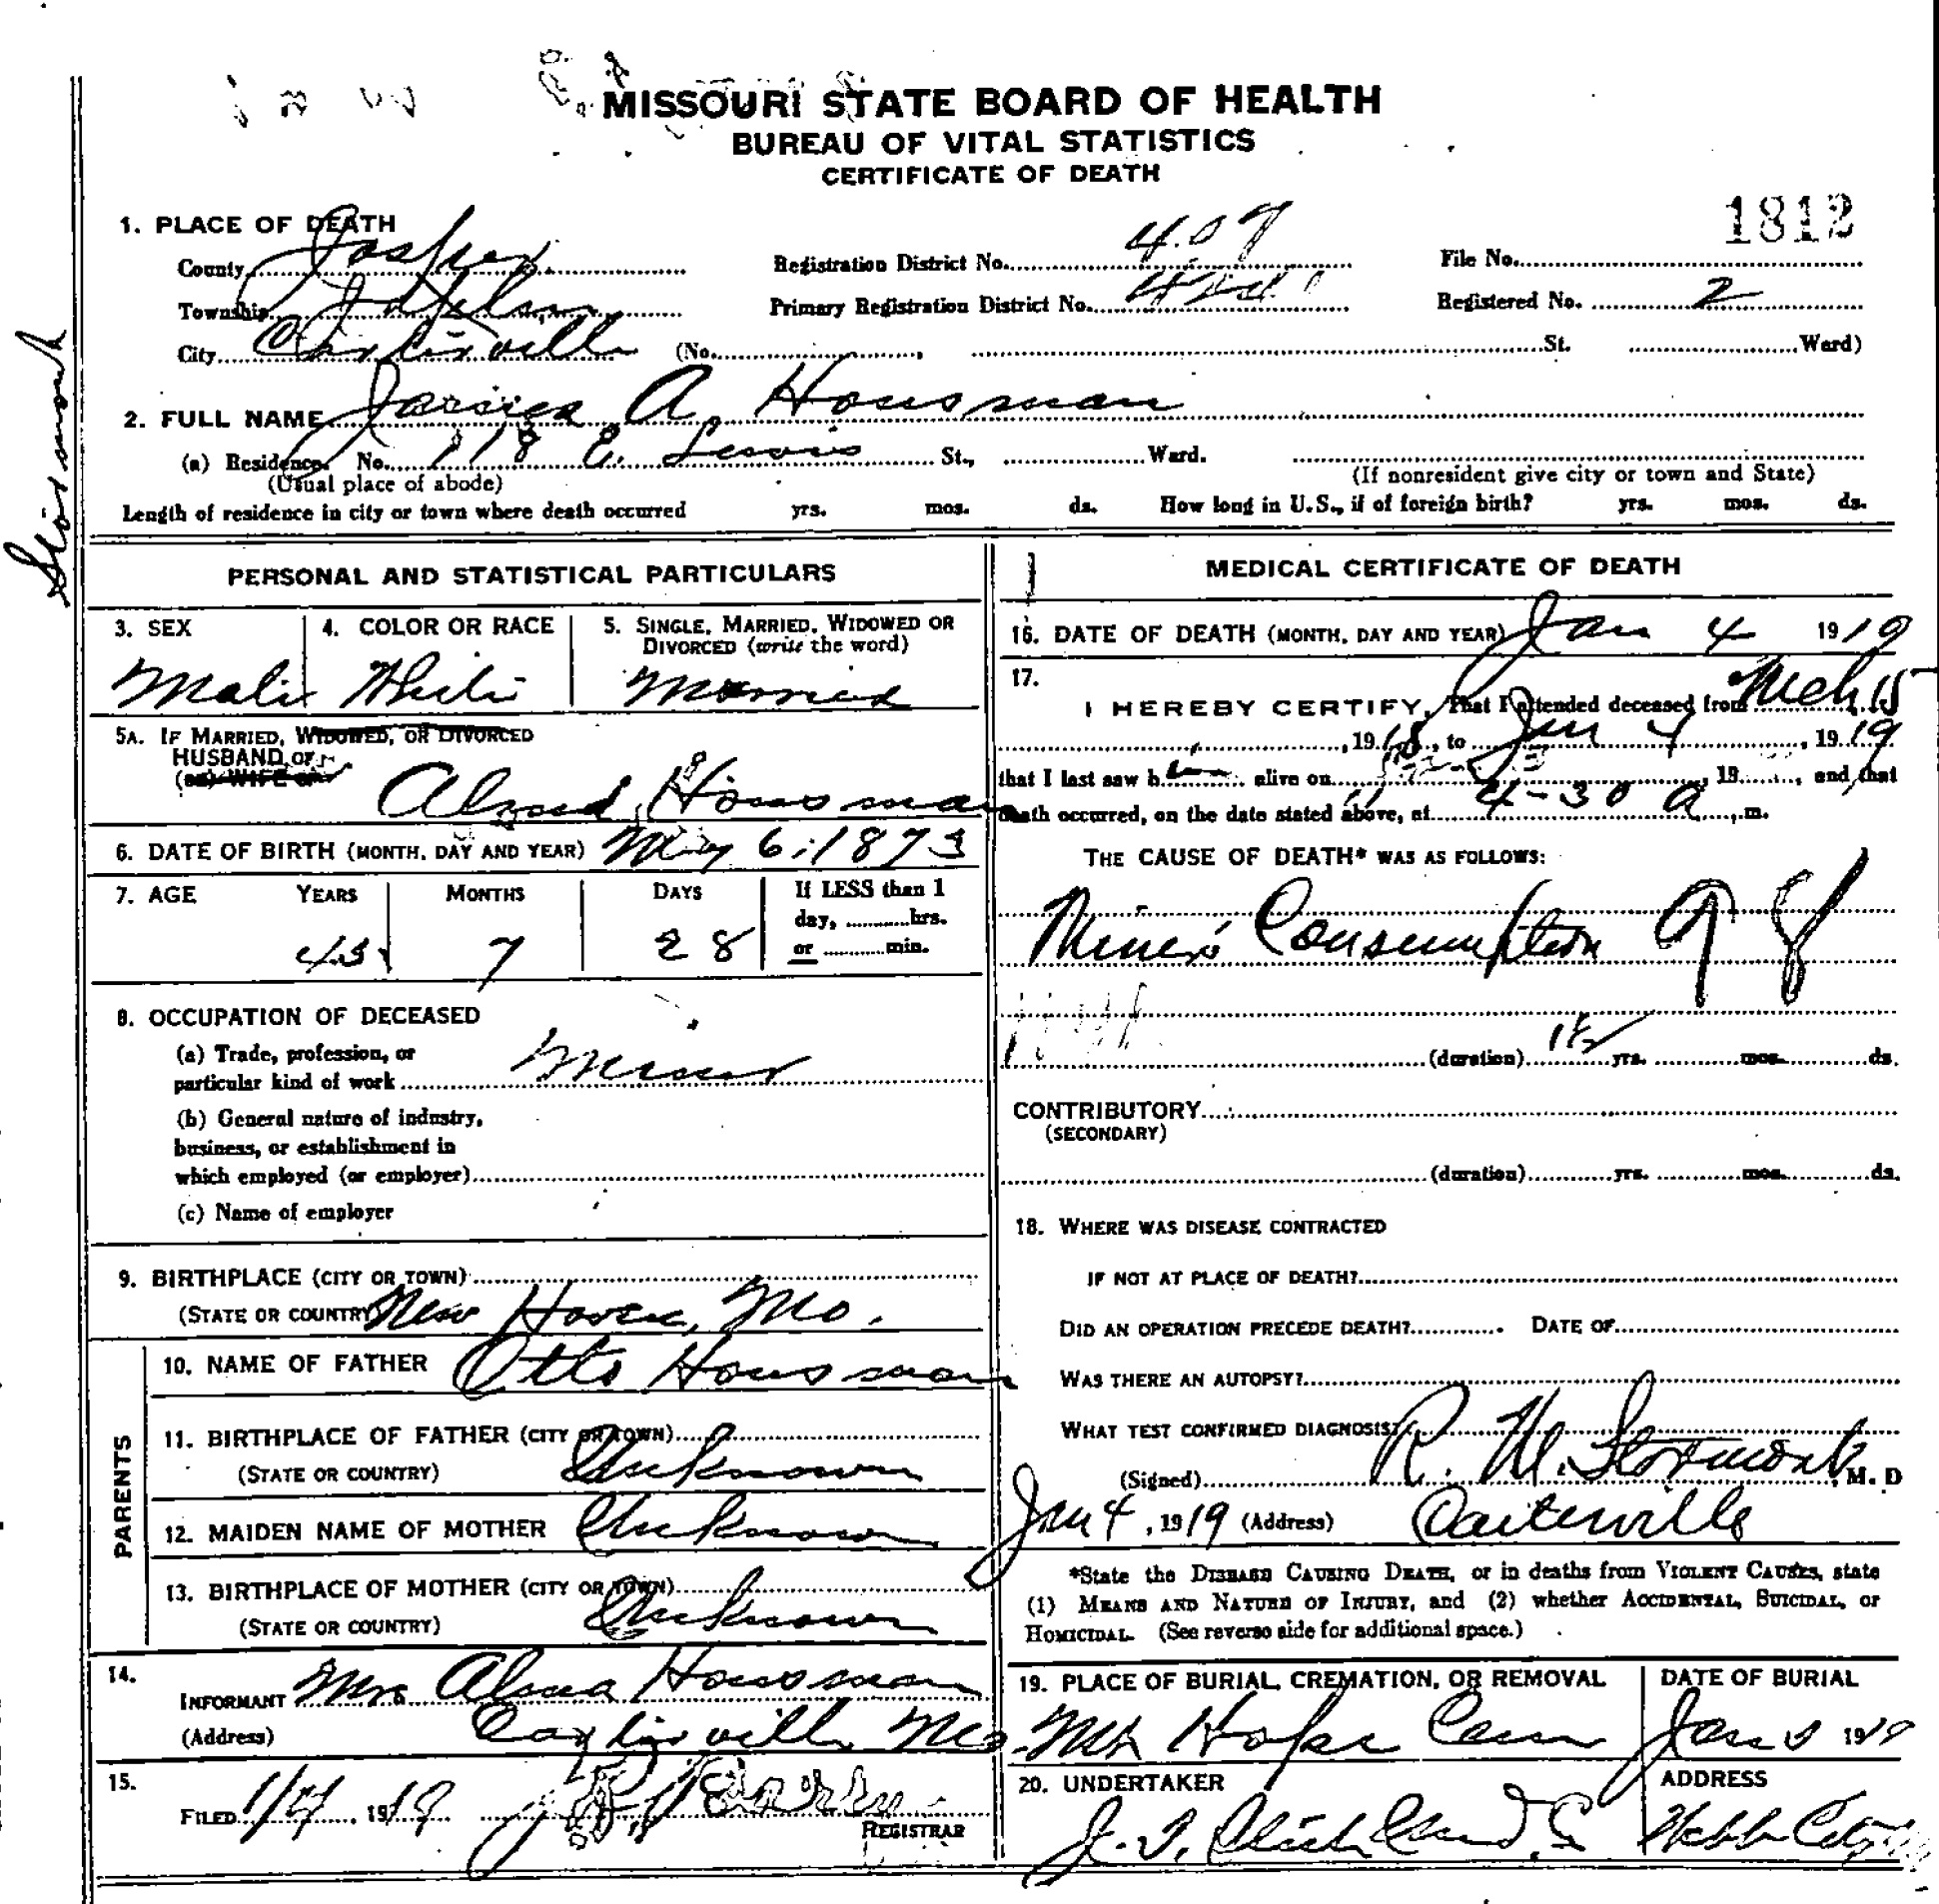 MISSOURI STATE BOARD OF HEALTH
BUREAU OF VITAL STATISTICS
CERTIFICATE OF DEATH
1812
1. PLACE OF DEATH
County Jasper Registration District No. 407 File No.
Township Primary Registration District No. Registered No. 2
City Carterville (No. , St. Ward)
2. FULL NAME A. Housman
(a) Residence. No. 118 E. Lewis St., Ward.
(Usual place of abode) (If nonresident give city or town and State)
Length of residence in city or town where death occurred yrs. mos. ds. How long in U.S., if of foreign birth? yrs. mos. ds.
Stormont
PERSONAL AND STATISTICAL PARTICULARS
3. SEX 4. COLOR OR RACE 5. SINGLE, MARRIED, WIDOWED OR
DIVORCED (write the word)
Male White Married
5A. IF MARRIED, WIDOWED, OR DIVORCED
HUSBAND OF
(OR) WIFE OF
Housman
6. DATE OF BIRTH (MONTH, DAY AND YEAR) May 6, 1873
7. AGE YEARS MONTHS DAYS If LESS than 1
day, hrs.
or min.
45 7 28
8. OCCUPATION OF DECEASED
(a) Trade, profession, or
particular kind of work Miner
(b) General nature of industry,
business, or establishment in
which employed (or employer)
(c) Name of employer
9. BIRTHPLACE (CITY OR TOWN)
(STATE OR COUNTRY) New Haven, Mo.
PARENTS
10. NAME OF FATHER Otto Housman
11. BIRTHPLACE OF FATHER (CITY OR TOWN)
(STATE OR COUNTRY) Unknown
12. MAIDEN NAME OF MOTHER Unknown
13. BIRTHPLACE OF MOTHER (CITY OR TOWN)
(STATE OR COUNTRY) Unknown
14.
INFORMANT Mrs Alma Housman
(Address) Carterville Mo.
15.
FILED 1/4, 1919
REGISTRAR
MEDICAL CERTIFICATE OF DEATH
16. DATE OF DEATH (MONTH, DAY AND YEAR) Jan 4 1919
17.
I HEREBY CERTIFY, That I attended deceased from Mch 15
, 1918, to Jan 4, 1919
that I last saw h alive on , 19 , and that
death occurred, on the date stated above, at 4-30 a. m.
THE CAUSE OF DEATH* WAS AS FOLLOWS:
Miners Consumption 98
(duration) 1½ yrs. mos. ds.
CONTRIBUTORY
(SECONDARY)
(duration) yrs. mos. ds.
18. WHERE WAS DISEASE CONTRACTED
IF NOT AT PLACE OF DEATH?
DID AN OPERATION PRECEDE DEATH? DATE OF
WAS THERE AN AUTOPSY?
WHAT TEST CONFIRMED DIAGNOSIS?
(Signed) R. M. Stormont, M. D
Jan 4, 1919 (Address) Carterville
*State the DISEASE CAUSING DEATH, or in deaths from VIOLENT CAUSES, state
(1) MEANS AND NATURE OF INJURY, and (2) whether ACCIDENTAL, SUICIDAL, or
HOMICIDAL. (See reverse side for additional space.)
19. PLACE OF BURIAL, CREMATION, OR REMOVAL DATE OF BURIAL
Mt Hope Cem Jan 1919
20. UNDERTAKER ADDRESS
Webb City